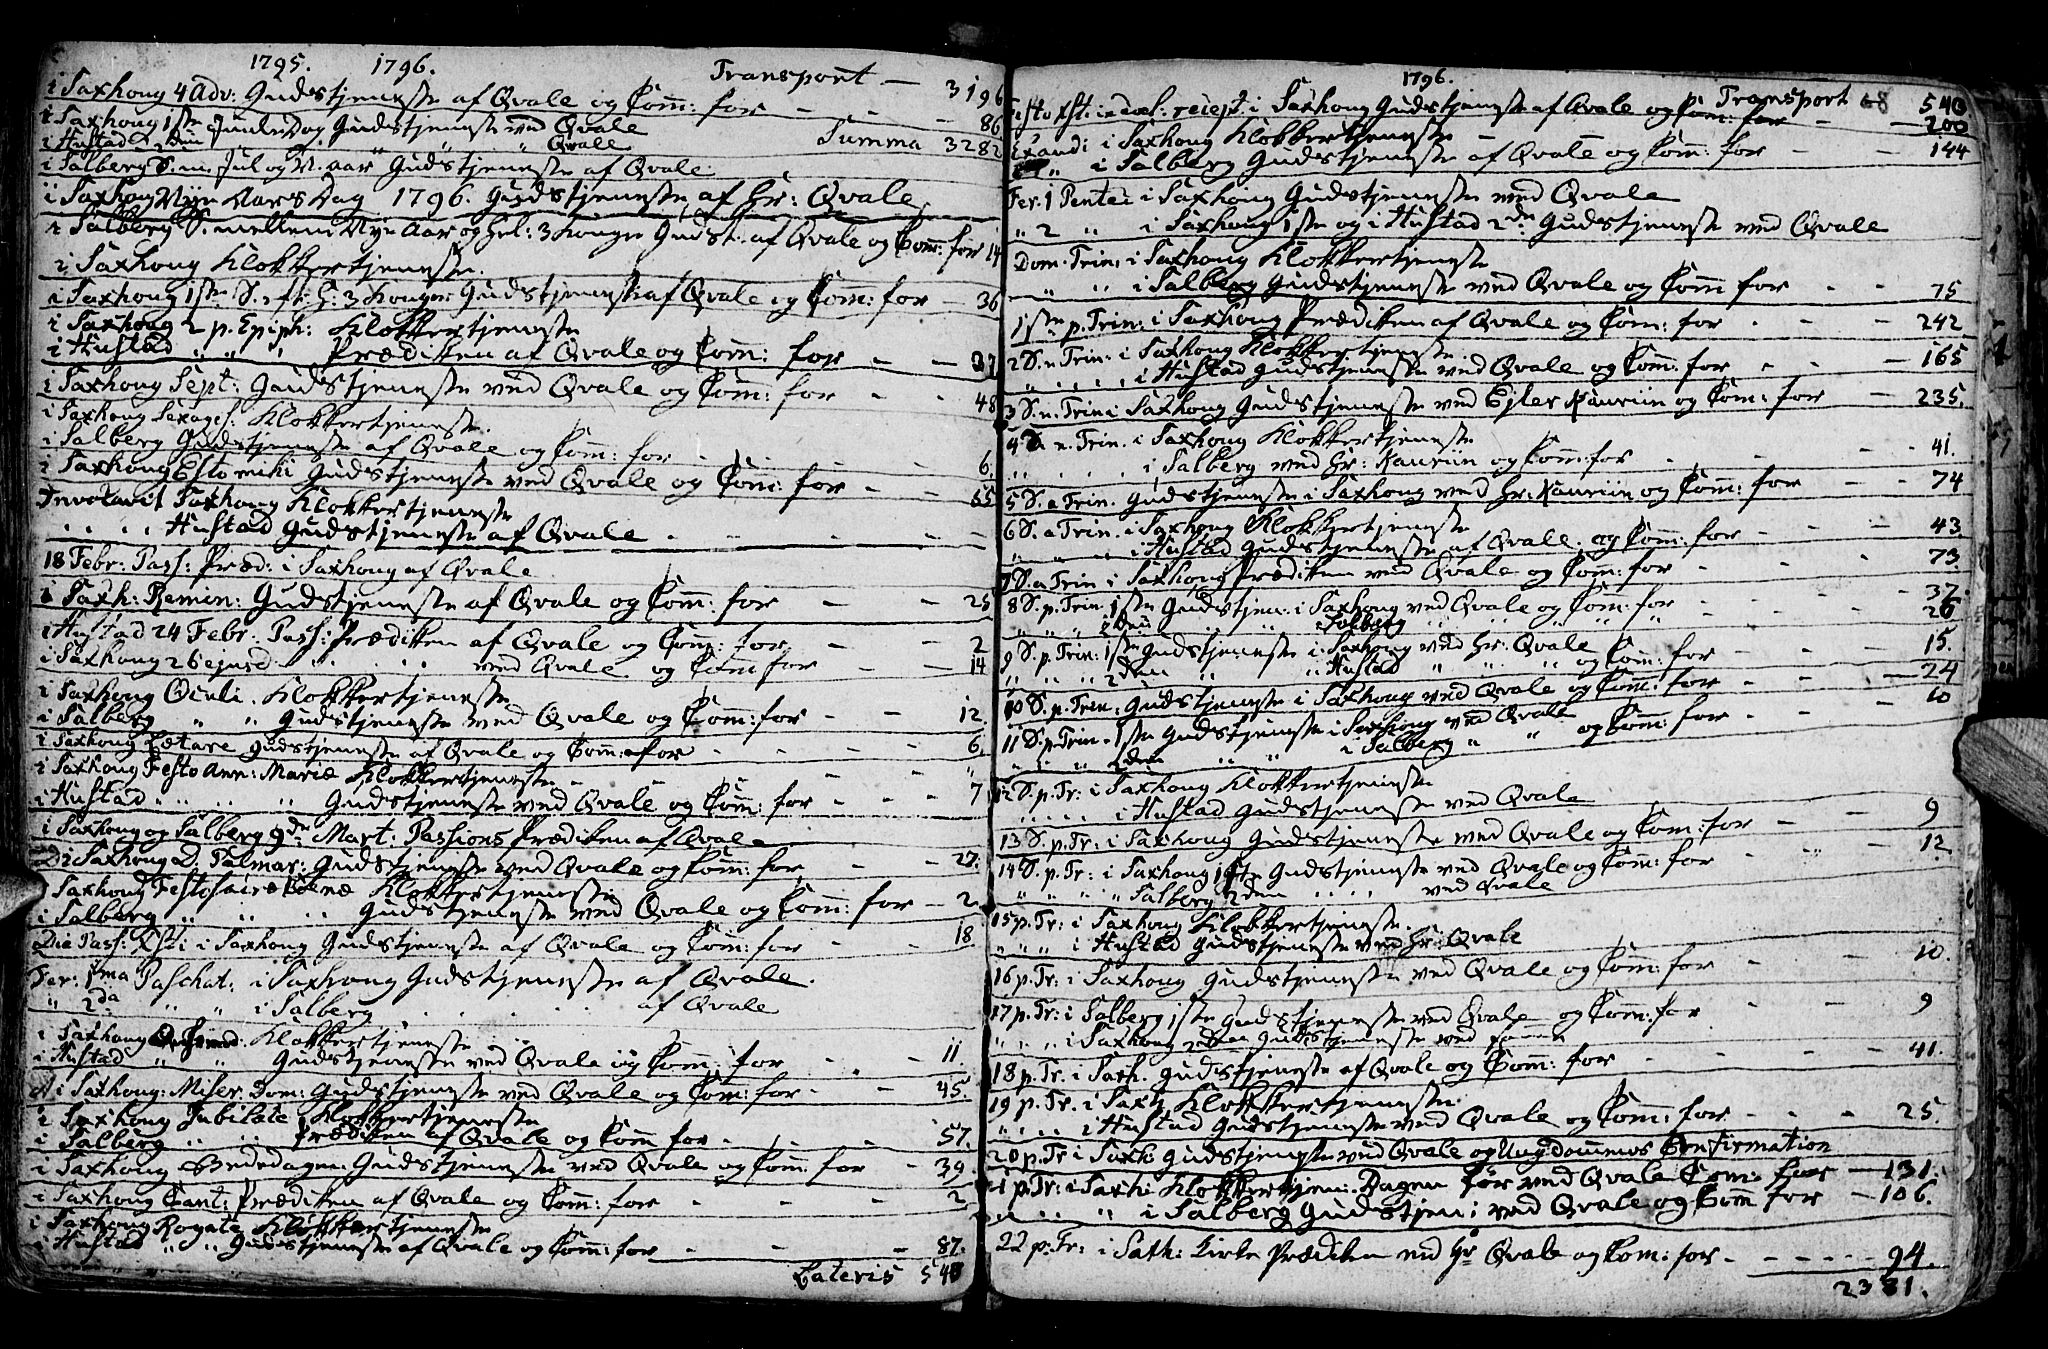 1795. 1796. Transport — 3196
i Saxhoug 4 Adv: Gudstjeneste af Qvale og Com̄: for — — — 86
i Saxhoug 1ste Juledag Gudstjeneste ved Qvale Summa 3282
i Hustad 2den " " " Qvale
i Salberg S. m. Jul og N. aar Gudstjeneste af Qvale
i Saxhoug Nyn Aars Dag 1796. Gudstjeneste af Hr: Qvale
i Salberg S. mellem Nyn Aar og Hel: 3 Konger Gudst. af Qvale og Com̄: for 14
i Saxhoug Klokkertjeneste.
i Saxhoug 1ste S. eft: H: 3 Konger Gudstjeneste af Qvale og Com̄: for 36
i Saxhoug 2 p. Epiph: Klokkertjeneste
i Hustad " " " Prædiken af Qvale og Com̄: for — — 37
i Saxhoug Sept: Gudstjeneste ved Qvale og Com̄: for - - 48
i Saxhoug Sexages: Klokkertjeneste.
i Salberg Gudstjeneste af Qvale og Com̄: for - - 6.
i Saxhoug Esto mihi Gudstjeneste ved Qvale og Com̄: for — — 65
Invocavit Saxhoug Klokkertjeneste
. . . . Hustad Gudstjeneste af Qvale - - - - -
18 Febr: Pass: Præd: i Saxhoug af Qvale
i Saxh: Remin: Gudstjeneste af Qvale og Com̄: for — — 25
i Hustad 24 Febr: Pass: Prædiken af Qvale og Com̄: for — — 2
i Saxhoug 26 ejusd . . . . ved Qvale og Com̄ for — — 14
i Saxhoug Oculi. Klokkertjeneste
i Salberg " " Gudstjeneste ved Qvale og Com̄: for — — 12.
i Saxhoug Lætare Gudstjeneste af Qvale og Com̄: for - - - 6.
i Saxhoug Festo Ann: Mariæ Klokkertjeneste - - - "
i Hustad " " " Gudstjeneste ved Qvale og Com̄: for - - - 7
i Saxhoug og Salberg 9de Mart: Passions Prædiken af Qvale
i Saxhoug D. Palmar: Gudstjeneste ved Qvale og Com̄: for - - 27.
i Saxhoug Festo Klokkertjeneste
i Salberg " " " Gudstjeneste ved Qvale og Com̄: for — 2
Die Pass: Xsti i Saxhoug Gudstjeneste af Qvale og Com̄: for - - 18
Fer: 1ma Paschat: i Saxhoug Gudstjeneste af Qvale.
" 2da " " i Salberg . . . . . af Qvale
i Saxhoug Klokkertjeneste
i Hustad " " Gudstjeneste ved Qvale og Com̄: for — — 11
i Saxhoug: Miser. Dom: Gudstjeneste ved Qvale og Com̄: for - - 45.
i Saxhoug Jubilate Klokkertjeneste
i Salberg " " Prædiken af Qvale og Com̄ for - - - 57.
i Saxhoug Bededagen: Gudstjeneste ved Qvale og Com̄: for — 39
i Saxhoug Cant: Prædiken af Qvale og Com̄: for - - - 2
i Saxhoug Rogate Klokkertjeneste
i Hustad " " Gudstjeneste af Qvale og Com̄: for — — — 87.
Lateris 548
1796.
Transport 548
Festo Xsti in coel: recept: i Saxhoug Gudstjeneste af Qvale og Com̄: for — 200
Exaudi i Saxhoug Klokkertjeneste
" " i Salberg Gudstjeneste af Qvale og Com̄: for — — 144
Fer. 1 Pente: i Saxhoug Gudstjeneste ved Qvale
" 2 " i Saxhoug 1ste og i Hustad 2den Gudstjeneste ved Qvale
Dom. Trin: i Saxhoug Klokkertjeneste
" " i Salberg Gudstjeneste ved Qvale og Com̄ for - - 75
1ste p. Trin: i Saxhoug Prædiken af Qvale og Com̄: for . - - 242
2 S. e Trin: i Saxhoug Klokkertjeneste
" . . . . i Hustad Gudstjeneste ved Qvale og Com̄: for - - - 165
3 S. e. Trin: i Saxhoug Gudstjeneste ved Ejler Kauriin og Com̄: for — 235.
4 S. e. Trin. i Saxhoug Klokkertjeneste
. . . . . i Salberg ved Hr: Kauriin og Com̄: for - - - 41.
5 S. a Trin. Gudstjeneste i Saxhoug ved Hr: Kauriin og Com̄: for — — 74
6 S. a Trin. i Saxhoug Klokkertjeneste
" " " i Hustad Gudstjeneste af Qvale og Com̄: for - - 43
7 S. a Trin i Saxhoug Prædiken ved Qvale og Com̄: for - - 73
8 S. p. Trin. 1ste Gudstjen: i Saxhoug ved Qvale og Com̄: for - - 37.
" " " 2den " " Salberg " " " " " 26
9 S. p. Trin: 1ste Gudstjeneste i Saxhoug ved Hr: Qvale - 15.
" " " 2den " " Hustad " " og Com̄: for - - 24
10 S. p. Trin: Gudstjeneste i Saxhoug ved Qvale og Com̄: for - - 10
11 S. p. Trin. 1ste Gudstjeneste i Saxhoug ved Qvale
" " " 2den " " i Salberg " " og Com̄: for - -
12 S. p. Tr: i Saxhoug Klokkertjeneste
. . . . . i Hustad Gudstjeneste ved Qvale
13 S. p. Tr: i Saxhoug Gudstjeneste ved Qvale og Com̄: for — — 9
14 S. p. Tr: i Saxhoug 1ste Gudstjeneste ved Qvale og Com̄: for — — 12
" " " " Salberg 2den . . . . ved Qvale
15 p. Tr: i Saxhoug Klokkertjeneste.
" " " i Hustad Gudstjeneste ved Hr: Qvale
16 p. Tr: i Saxhoug Gudstjeneste ved Qvale og Com̄: for - - 10.
17 p. Tr: i Salberg 1ste Gudstjeneste ved Qvale og Com̄: for - - 9
" . " i Saxhoug 2den Gudstjeneste ved
18 p. Tr. i Saxh. Gudstjeneste af Qvale og Com̄: for - - - 41.
19 p. Tr. i Saxh. Klokkertjeneste.
" . . . i Hustad Gudstjeneste ved Qvale og Com̄: for - - - 25.
20 p. Tr i Saxh: Gudstjeneste ved Qvale og Ungdommens Confirmation
21 p. Tr: i Saxh: Klokkertjen: Dagen før ved Qvale Com: for — 131.
" . . " i Salberg Gudstjen: ved Qvale og Com̄ for — 106.
22 p. Tr: i Saxh: Kirke Prædiken ved Hr Qvale og Com: for - - - - - 94.
2331.